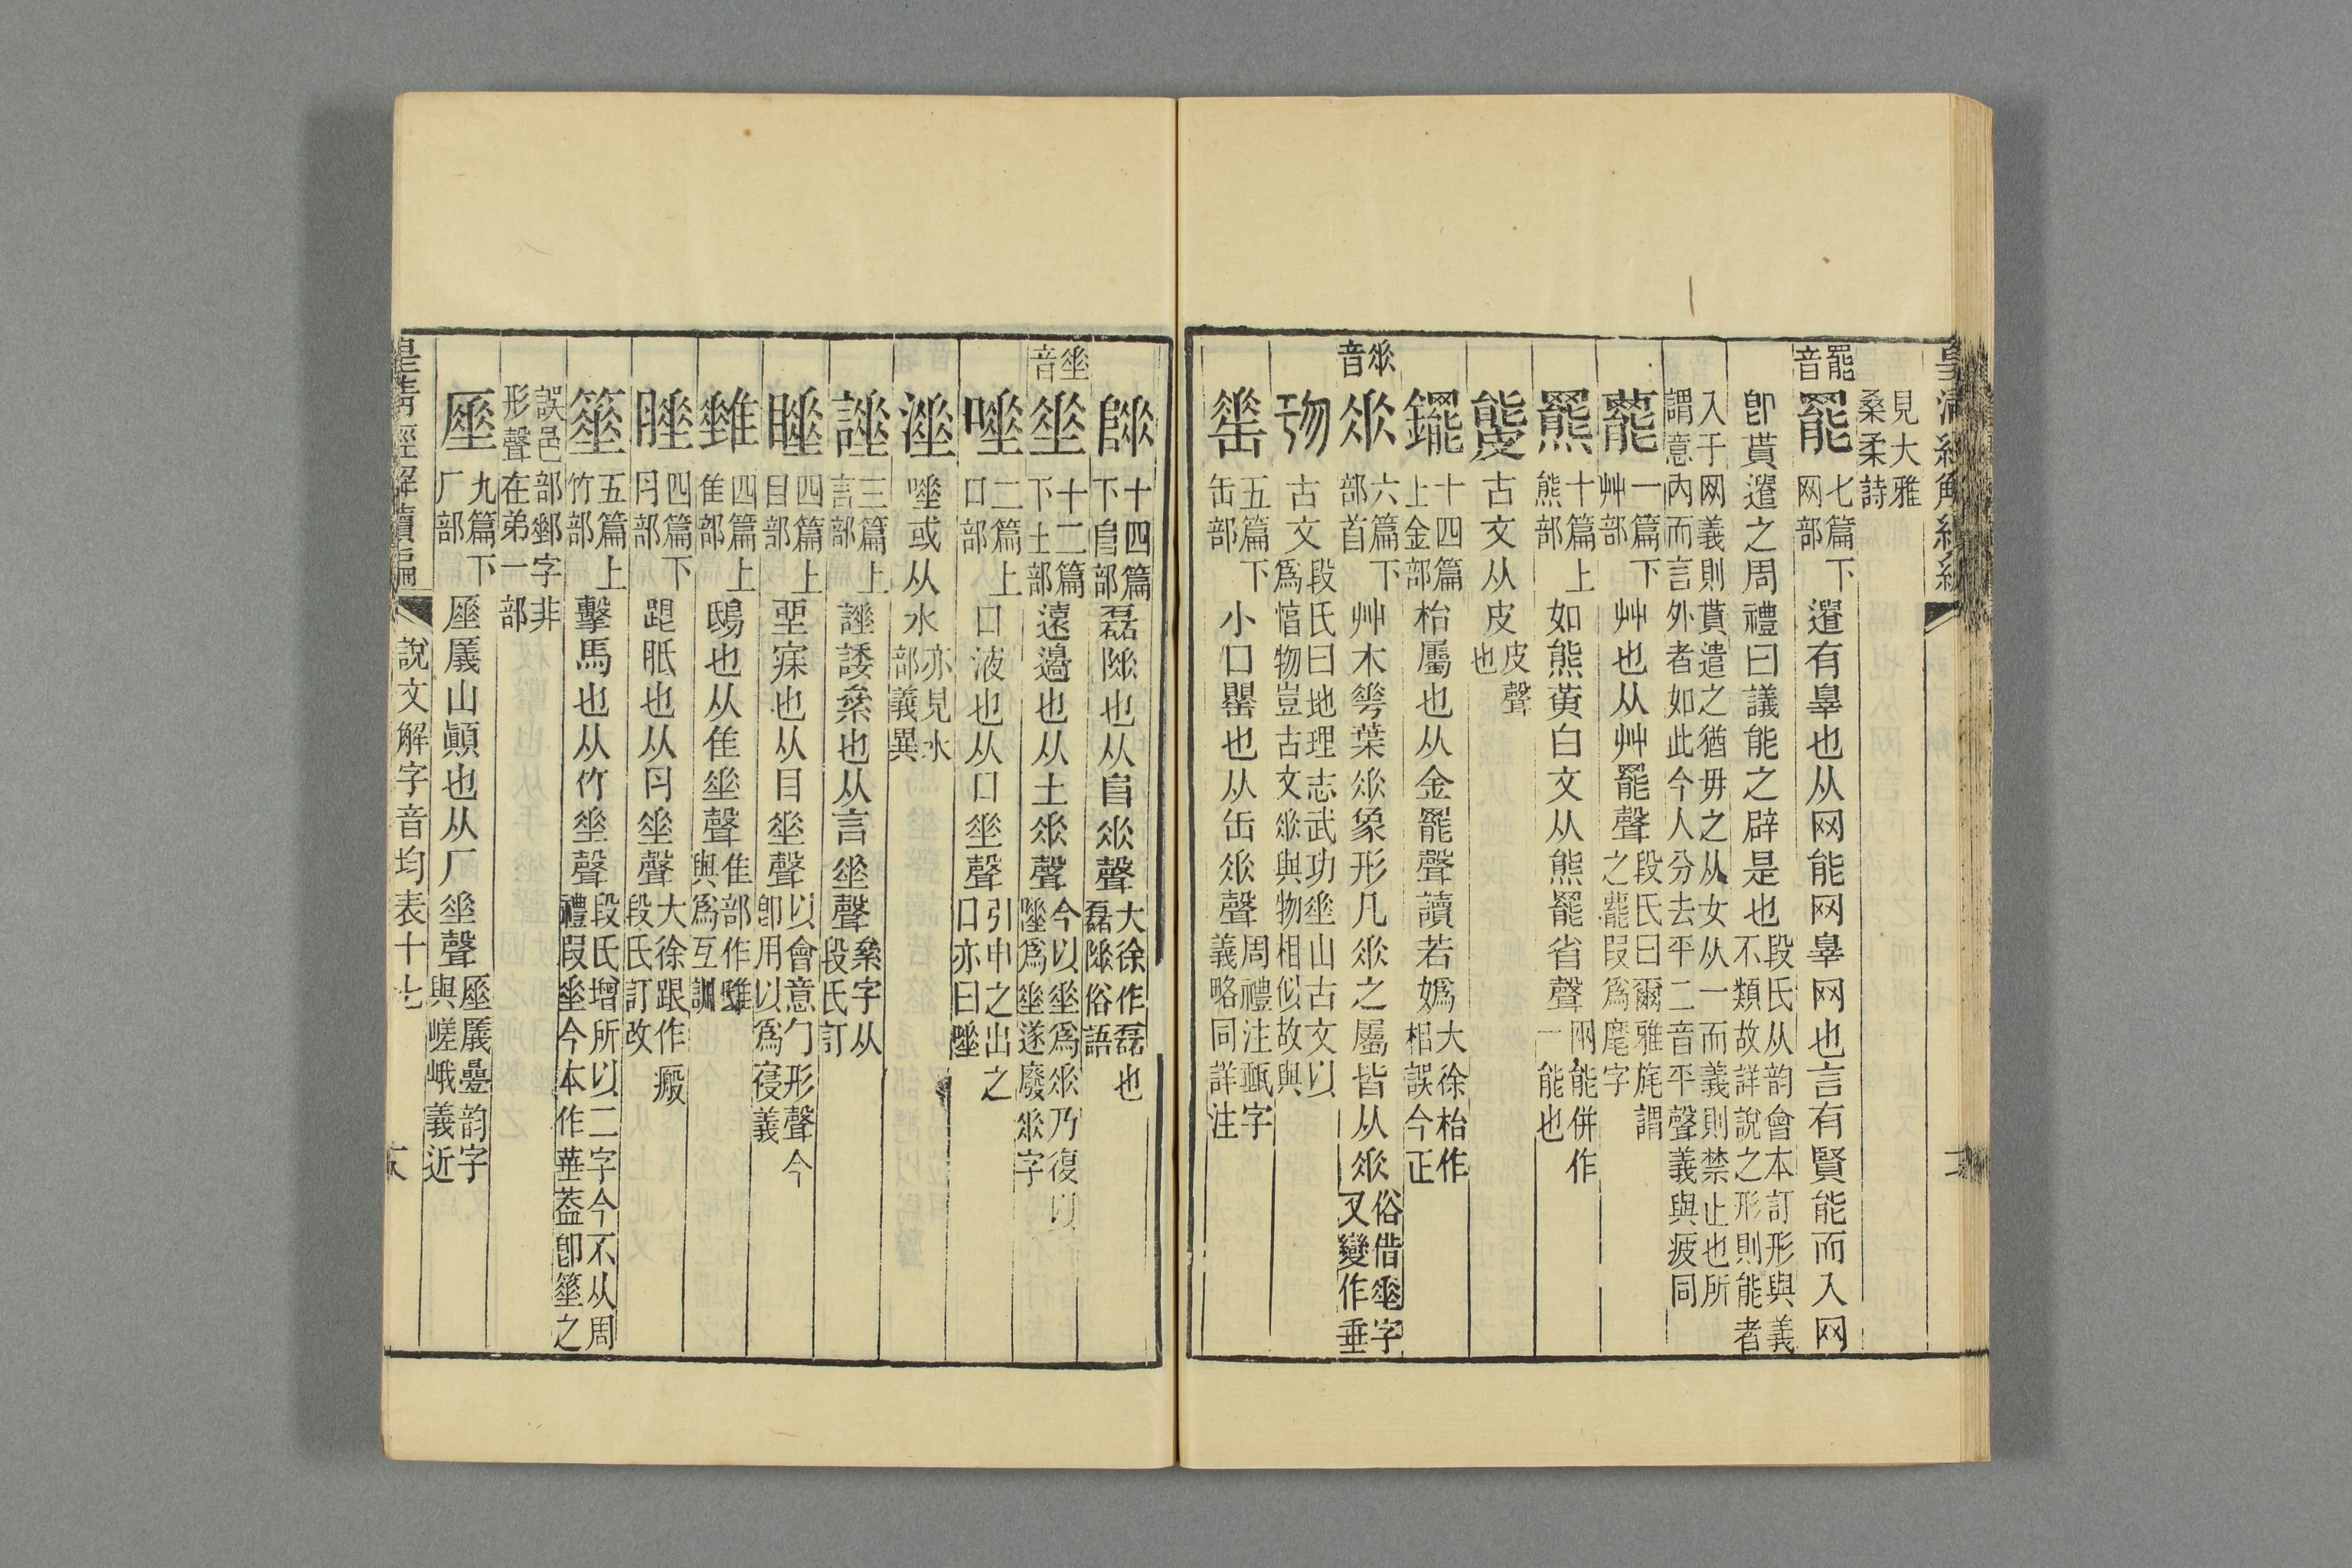 見大雅桑柔詩
罷音 罷 七篇下网部 遣有辠也从网能网辠网也言有賢能而入网
卽貰遣之周禮曰議能之辟是也 段氏从韵會本訂形與義不類故詳說之形則能者
入于网義則貰遣之猶毋之从女从一而義則禁止也所謂意內而言外者如此今人分去平二音平聲義與疲同
䕗 一篇下艸部 艸也从艸罷聲 段氏曰爾雅旄謂之䕗叚爲麾字
羆 十篇上熊部 如熊黃白文从熊罷省聲 兩能併作一能也
古文从皮 皮聲也
鑼 十四篇上金部 枱屬也从金罷聲讀若嬀 大徐枱作相誤今正
𠂹音 𠂹 六篇下部首 艸木𠌶葉𠂹象形凡𠂹之屬皆从𠂹 俗借𡍮字又變作垂
古文 段氏曰地理志武功𡍮山古文以爲惇物豈古文𠂹與物相似故與
五篇下缶部 小口罌也从缶𠂹聲 周禮注甀字義略同詳注
十四篇下𨸏部 磊也从𨸏𠂹聲 大徐作磊也磊俗語
𡍮音 𡍮 十二篇下土部 遠邊也从土𠂹聲 今以𡍮爲𠂹乃復以陲爲𡍮遂廢𠂹字
唾 二篇上口部 口液也从口𡍮聲 引申之出之口亦曰唾
涶 唾或从水 亦見水部義異
諈 三篇上言部 諈諉纍也从言𡍮聲 纍字从段氏訂
睡 四篇上目部 坐寐也从目𡍮聲 以會意勹形聲今卽用以爲寑義
雖 四篇上隹部 鴟也从隹𡍮聲 隹部作雖與爲互訓
腄 四篇下⺼部 跟胝也从⺼𡍮聲 大徐跟作瘢段氏訂改
箠 五篇上竹部 擊馬也从竹𡍮聲 段氏增所以二字今不从周禮叚𡍮今本作華葢卽箠之
誤邑部郵字非形聲在弟一部
厜 九篇下厂部 厜㕒山顚也从厂𡍮聲 厜㕒疊韵字與嵯峨義近
說文解字音均表十七